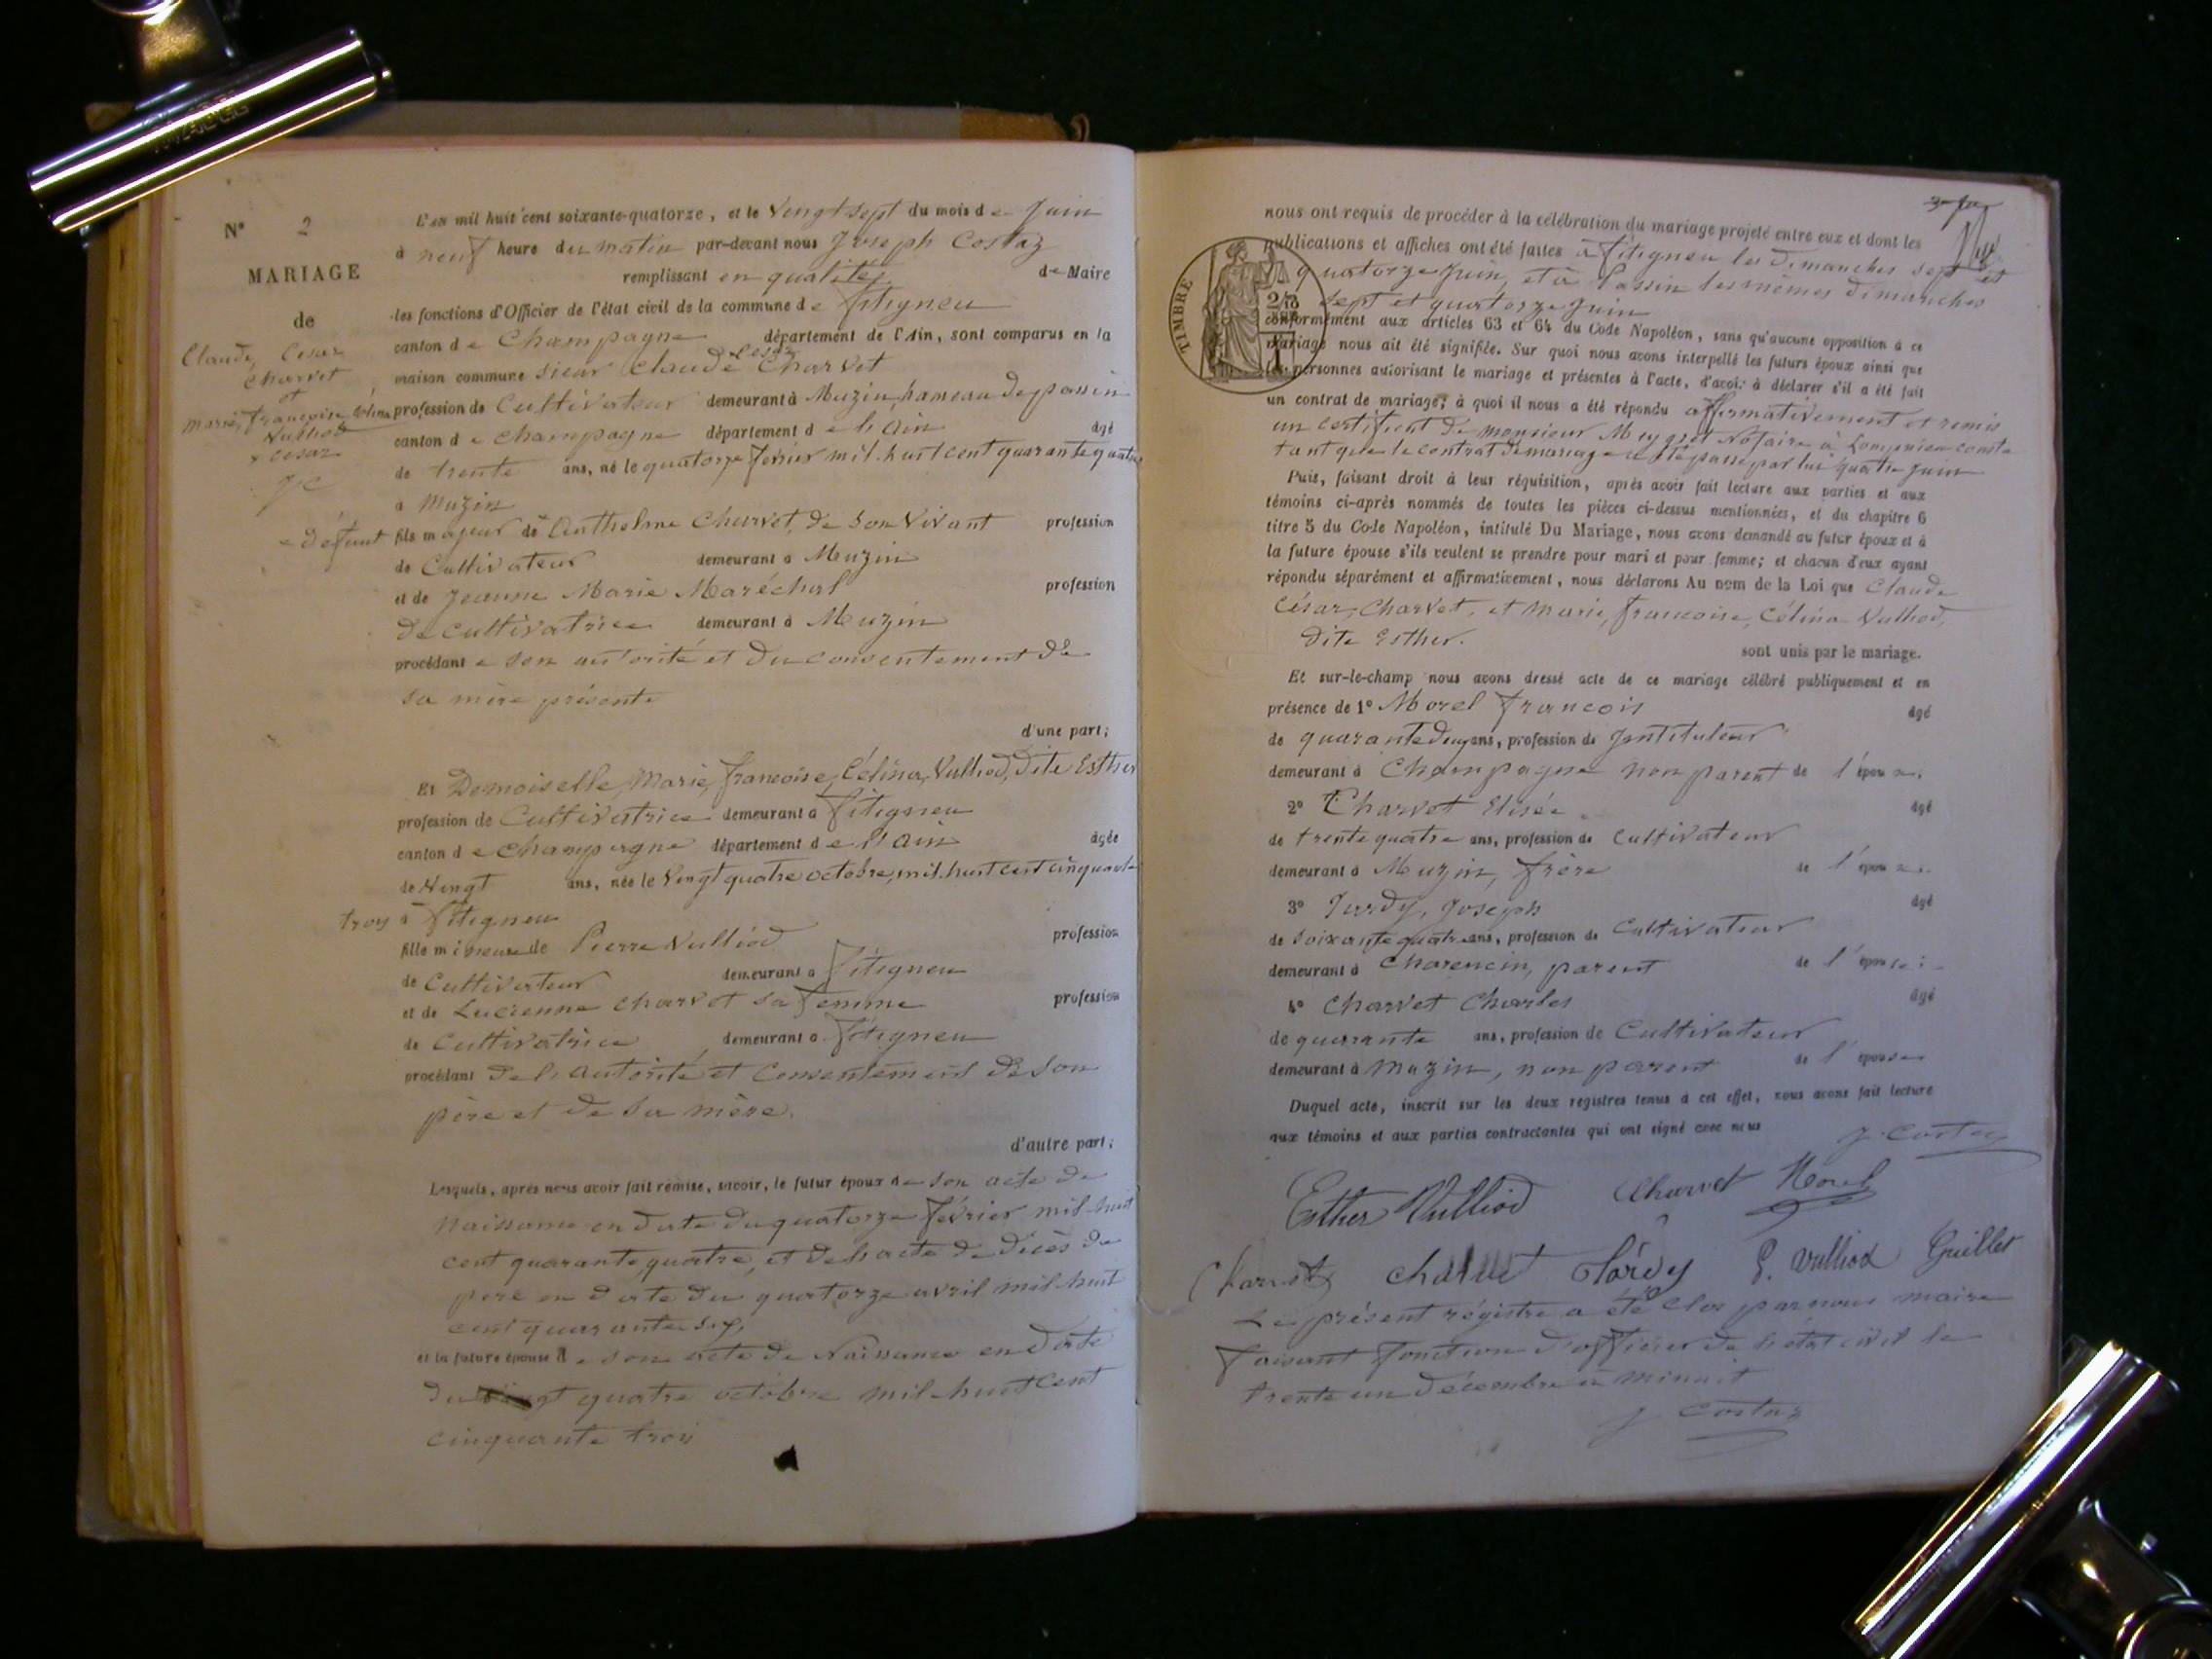 N° 2
MARIAGE
de
Claude, Cesar
Charvet
et
marie, françoise, Célina
Vulliod
x cesar
J C
L'an mil huit cent soixante-quatorze, et le Vingt sept du mois de Juin
à neuf heure du matin par-devant nous Joseph Costaz
remplissant en qualité de Maire
les fonctions d'Officier de l'état civil de la commune de fitigneu
canton de Champagne département de l'Ain, sont comparus en la
maison commune sieur Claude Cesar Charvet
profession de Cultivateur demeurant à Muzin, hameau de passin
canton de Champagne département de l'ain âgé
de trente ans, né le quatorze février mil huit cent quarante quatre
à Muzin
défunt fils majeur de Anthelme Charvet, de son Vivant profession
de Cultivateur demeurant à Muzin
et de Jeanne Marie Maréchal profession
de cultivatrice demeurant à Muzin
procédant de son autorité et du consentement de
sa mère présente
d'une part;
Et Demoiselle, Marie, françoise, Célina, Vulliod, dite Esther
profession de Cultivatrice demeurant à fitigneu
canton de Champagne département de l'Ain âgée
de Vingt ans, née le Vingt quatre octobre, mil huit cent cinquante
trois à fitigneu
fille mineure de Pierre Vulliod profession
de Cultivateur demeurant à fitigneu
et de Lucienne Charvet sa femme profession
de Cultivatrice demeurant à fitigneu
procédant de l'autorité et Consentement de son
père et de sa mère.
d'autre part;
Lesquels, après nous avoir fait remise, savoir, le futur époux de son acte de
Naissance en date du quatorze février mil huit
cent quarante quatre, et de l'acte de décès du
père en date du quatorze avril mil huit
cent quarante six,
et la future épouse de son acte de Naissance en date
du vingt quatre octobre mil huit cent
cinquante trois
nous ont requis de procéder à la célébration du mariage projeté entre eux et dont les
publications et affiches ont été faites à fitigneu les dimanches sept et
quatorze Juin, et à Passin les mêmes dimanches
sept et quatorze Juin
TIMBRE
conformément aux articles 63 et 64 du Code Napoléon, sans qu'aucune opposition à ce
mariage nous ait été signifiée. Sur quoi nous avons interpellé les futurs époux ainsi que
les personnes autorisant le mariage et présentes à l'acte, d'avoir à déclarer s'il a été fait
un contrat de mariage; à quoi il nous a été répondu affirmativement et remis
un certificat de monsieur Notaire à consta
tant que le contrat de mariage a été passé par lui quatre Juin
Puis, faisant droit à leur réquisition, après avoir fait lecture aux parties et aux
témoins ci-après nommés de toutes les pièces ci-dessus mentionnées, et du chapitre 6
titre 5 du Code Napoléon, intitulé Du Mariage, nous avons demandé au futur époux et à
la future épouse s'ils veulent se prendre pour mari et pour femme; et chacun d'eux ayant
répondu séparément et affirmativement, nous déclarons Au nom de la Loi que Claude
César, Charvet, et Marie, françoise, Célina Vulliod,
dite Esther.
sont unis par le mariage.
Et sur-le-champ nous avons dressé acte de ce mariage célébré publiquement et en
présence de 1° Morel françois âgé
de quarante deux ans, profession de Instituteur
demeurant à Champagne non parent de l'époux
2° Charvet Elisée âgé
de trente quatre ans, profession de Cultivateur
demeurant à Muzin, frère de l'époux
3° Jardy, Joseph âgé
de soixante quatre ans, profession de Cultivateur
demeurant à Charencin, parent de l'épouse
4° Charvet Charles âgé
de quarante ans, profession de Cultivateur
demeurant à Muzin, non parent de l'épouse
Duquel acte, inscrit sur les deux registres tenus à cet effet, nous avons fait lecture
aux témoins et aux parties contractantes qui ont signé avec nous
J. Costaz
Esther Vulliod Charvet Morel
Charvet Charvet Jardy P. Vulliod Guillet
Le présent régistre a été clos par nous maire
faisant fonction d'officier de l'état civil le
trente un décembre à minuit
J Costaz